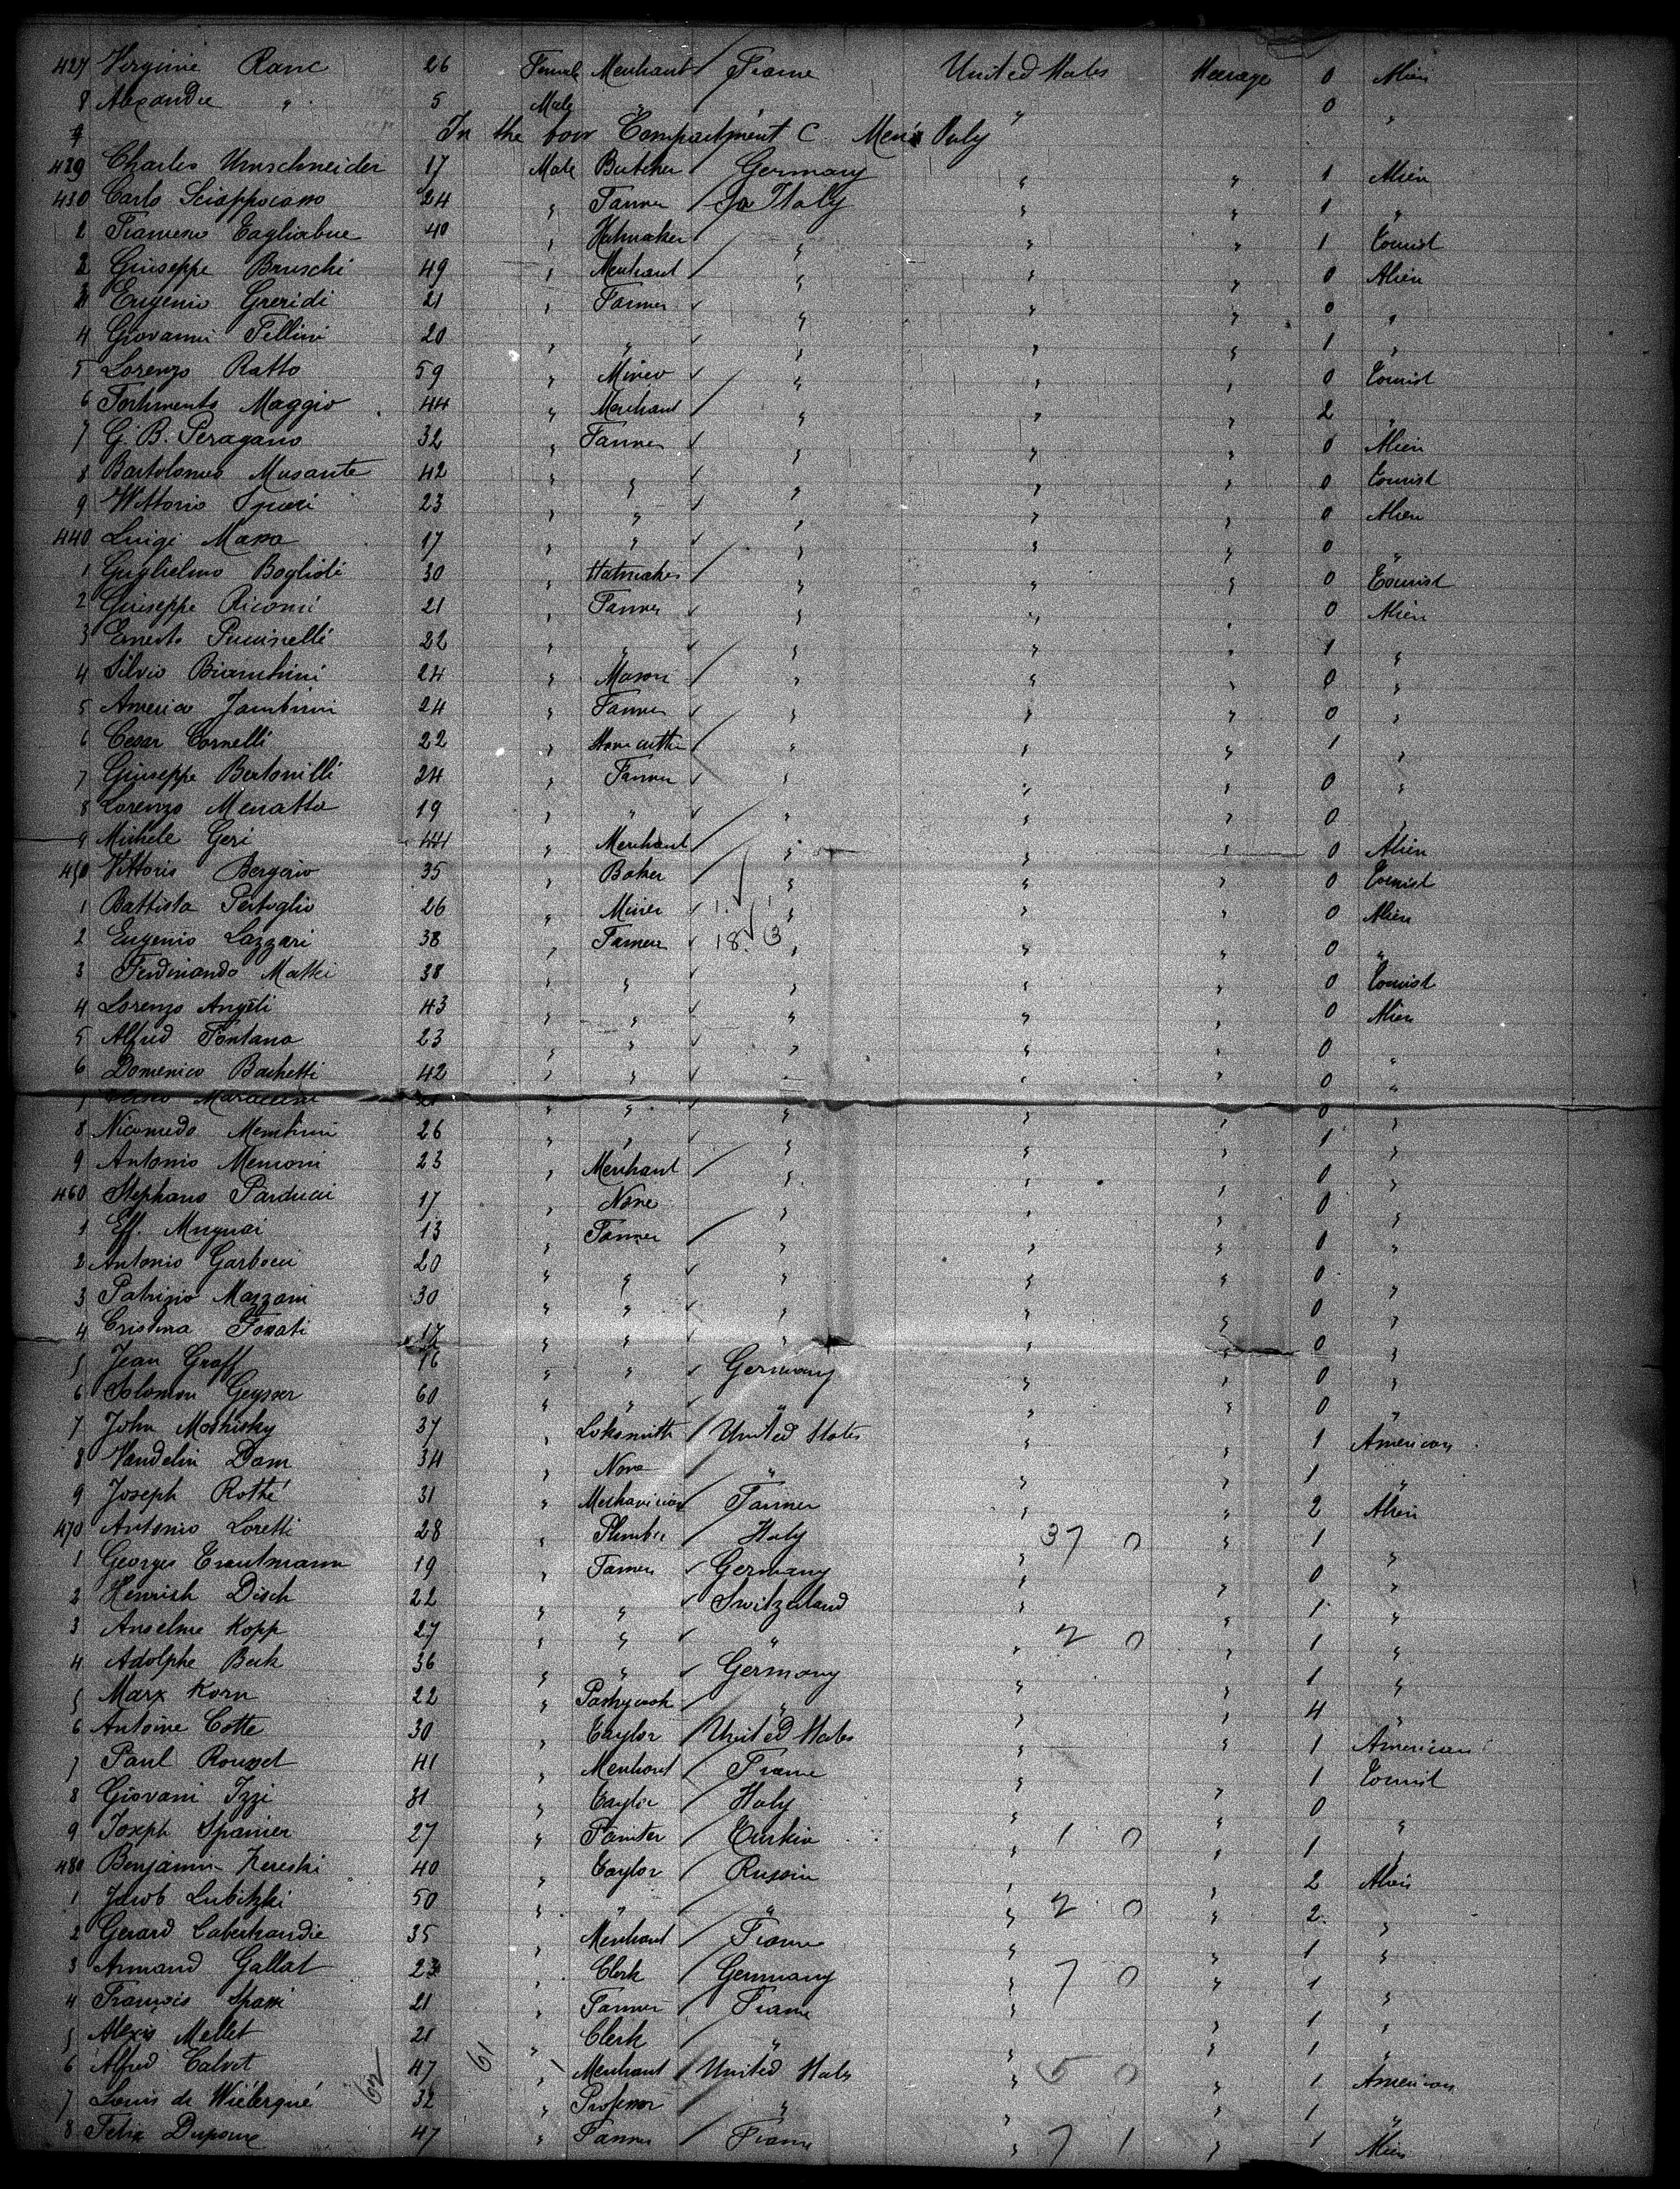 427 Virginie Ranc 26 Female Merchant / France United States Steerage 0 Alien
8 Alexandre " 5 Male " " 0 "
In the bow Compartment C Men's Only
429 Charles Umschneider 17 Male Butcher / Germany " " 1 Alien
430 Carlo Sciappocasso 24 " Farmer / Italy " " 1 "
2 Francesco Tagliabue 40 " Hatmaker / " " " 1 Tourist
2 Giuseppe Bruschi 49 " Merchant / " " " 0 Alien
3 Eugenio Greridi 21 " Farmer ✓ " " " 0 "
4 Giovanni Pellini 20 " " ✓ " " " 1 "
5 Lorenzo Ratto 59 " Miner ✓ " " " 0 Tourist
6 Maggio 44 " Merchant / " " " 2 "
7 G. B. Peragano 32 " Farmer ✓ " " " 0 Alien
8 Bartolomeo Musante 42 " " ✓ " " " 0 Tourist
9 Vittorio 23 " " ✓ " " " 0 Alien
440 Luigi Massa 17 " " ✓ " " " 0 "
1 Guglielmo Boglioli 30 " Hatmaker / " " " 0 Tourist
2 Giuseppe Riconi 21 " Farmer ✓ " " " 0 Alien
3 Ernesto Puccinelli 22 " " ✓ " " " 1 "
4 Silvio Bianchini 24 " Mason / " " " 0 "
5 Americo Jambrini 24 " Farmer ✓ " " " 0 "
6 Cesar Cornelli 22 " Stone cutter / " " " 1 "
7 Giuseppe Bertonilli 24 " Farmer ✓ " " " 0 "
8 Lorenzo Menatta 19 " " ✓ " " " 0 "
9 Michele Geri 44 " Merchant / " " " 0 Alien
450 Vittorio Bergario 35 " Baker / " " " 0 Tourist
1 Battista Pertoglio 26 " Miner ✓ " " " 0 Alien
2 Eugenio Lazzari 38 " Farmer ✓ 18 3 " " " 0 "
3 Ferdinando Mattei 38 " " ✓ " " " 0 Tourist
4 Lorenzo Angeli 43 " " ✓ " " " 0 Alien
5 Alfred Fontana 23 " " ✓ " " " 0 "
6 Domenico Bachetti 42 " " ✓ " " " 0 "
7 " " ✓ " " " 0 "
8 Nicomedo Menchini 26 " " ✓ " " " 1 "
9 Antonio Menconi 23 " Merchant / " " " 0 "
460 Stephano Parducci 17 " None " " " 0 "
1 Eff. Mugnai 13 " Farmer / " " " 0 "
2 Antonio Garbocci 20 " " ✓ " " " 0 "
3 Patrizio Mazzani 30 " " ✓ " " " 0 "
4 Cristina 17 " " ✓ " " " 0 "
5 Jean Graff 16 " " ✓ Germany " " 0 "
6 Solomon Geysser 60 " " ✓ " " " 0 "
7 John 37 " Loksmith / United States " " 1 American
8 Vandelin Dam 34 " None " " " 1 "
9 Joseph Rothé 31 " Mechanician / Farmer " " 2 Alien
470 Antonio Loretti 28 " Plumber / Italy " 37 0 " 1 "
1 Georges Trautmann 19 " Farmer ✓ Germany " " 0 "
2 Henrich Disch 22 " " ✓ Switzerland " " 1 "
3 Anselme Kopp 27 " " ✓ " " 2 0 " 1 "
4 Adolphe Beck 36 " " ✓ Germany " " 1 "
5 Marx Korn 22 " Pastrycook / " " " 4 "
6 Antoine Cotte 30 " Taylor / United States " " 1 American
7 Paul Roussel 41 " Merchant / France " " 1 Tourist
8 Giovani Izzi 31 " Taylor / Italy " " 0 "
9 Joseph Spanier 27 " Painter / Turkia " 1 0 " 1 "
480 Benjamin Kereski 40 " Taylor / Russia " " 2 Alien
1 Jacob Lubitzki 50 " " / " " 2 0 " 2 "
2 Gerard Laberhandie 35 " Merchant / France " " 1 "
3 Armand Gallat 23 " Clerk / Germany " 7 0 " 1 "
4 François 21 " Farmer / France " " 1 "
5 Alexis Mellet 21 " Clerk / " " " 1 "
6 Alfred Calvet 47 61 " Merchant / United States " 5 0 " 1 American
7 Louis de Wiélergué 62 32 " Professor / " " " 1 "
8 Felix 47 " Farmer / France " 7 1 " 1 Alien